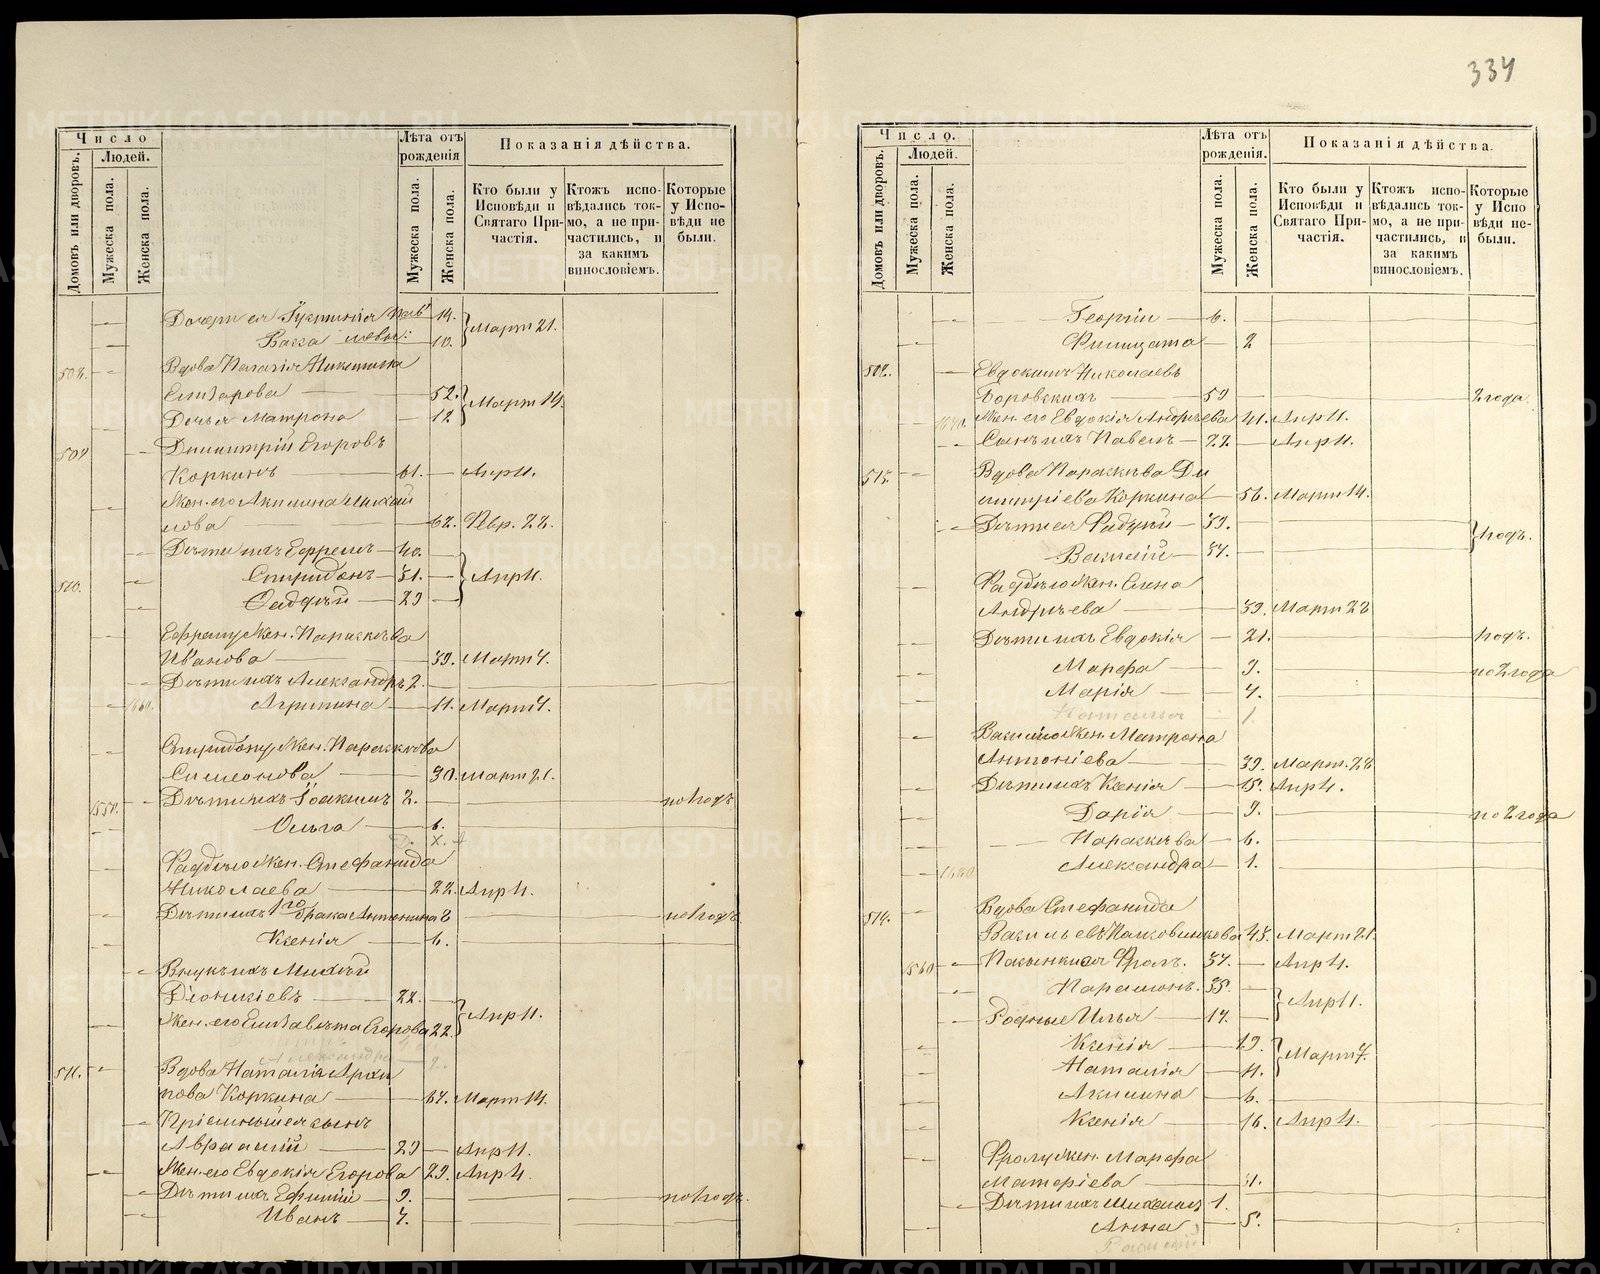 334
Число
Людей.
Домовъ или дворовъ.
Мужеска пола.
Женска пола.
Лѣта отъ рожденія
Мужеска пола.
Женска пола.
Показанія дѣйства.
Кто были у Исповѣди и Святаго Причастія.
Ктожъ исповѣдались токмо, а не причастились, и за каким винословіемъ.
Которые у Исповѣди не были.
Дочери ея 14.
Васса 10. Март 21.
Вдова Пелагія Никитина
Елизарова 52.
Дочь ея Матрона 12 Март 14.
509 Димитрій Егоровъ
Коркинъ 61. Апр 11.
Жен. его Акилина Михай
лова 62. Февр. 28.
Дѣти ихъ Ефремъ 40.
510. Спиридонъ 31. Апр 11.
Фаддѣй 29
Ефрему Жен. Параскева
Иванова 39. Март 7.
Дѣти ихъ Александръ 2.
Агрипина 11. Март 7.
Спиридону Жен. Параскева
Симеонова 30. Март 21.
Дѣти ихъ Іоакимъ 2.
Ольга 6.
Фаддѣю Жен. Стефанида
Николаева 22. Апр 4.
Дѣти ихъ 1го брака Антонина 8
Ксенія 6.
Внукъ ихъ Михей
Діонисіевъ 22.
Жен. его Елизавета Егорова 22. Апр 11.
511. Вдова Наталія Архи
пова Коркина 67. Март 14.
Пріемышъ ея сынъ
Авраамій 29 Апр 11.
Жен. его Евдокія Егорова 29. Апр 4.
Дѣти ихъ Ефимій 9.
Иванъ 7.
Число.
Людей.
Домовъ или дворовъ.
Мужеска пола.
Женска пола.
Лѣта отъ рожденія.
Мужеска пола.
Женска пола.
Показанія дѣйства.
Кто были у Исповѣди и Святаго Причастія.
Ктожъ исповѣдались токмо, а не причастились, и за каким винословіемъ.
Которые у Исповѣди не были.
Георгій 6.
Филицата 2
512. Евдокимъ Николаевъ
Боровскихъ 59 2 года
Жен. его Евдокія Андреева 41. Апр 11.
Сынъ ихъ Павелъ 22 Апр 11.
513. Вдова Параскева Ди
митріева Коркина 56. Март 14.
Дѣти ея Фаддей 39.
Василій 37. годъ.
Фаддѣю Жен. Анна
Андреева 39. Март 28
Дѣти ихъ Евдокія 21. годъ.
Марѳа 9. по 2 года
Марія 4.
Наталья 1.
Василію Жен. Матрона
Антоніева 39. Март. 28
Дѣти ихъ Ксенія 15. Апр 4.
Дарія 9. по 2 года
Параскева 6.
Александра 1.
514. Вдова Стефанида
Васильева 48. Март 21.
Пасынки ея Фролъ. 37. Апр 4.
Парамонъ. 35. Апр 11.
Родные Илья 17.
Ксенія 19. Март 7.
Наталія 11.
Акилина 6.
Ксенія 16. Апр 4.
Фролу Жен. Марѳа
Дѣти ихъ Михаилъ 1.
Анна 5.